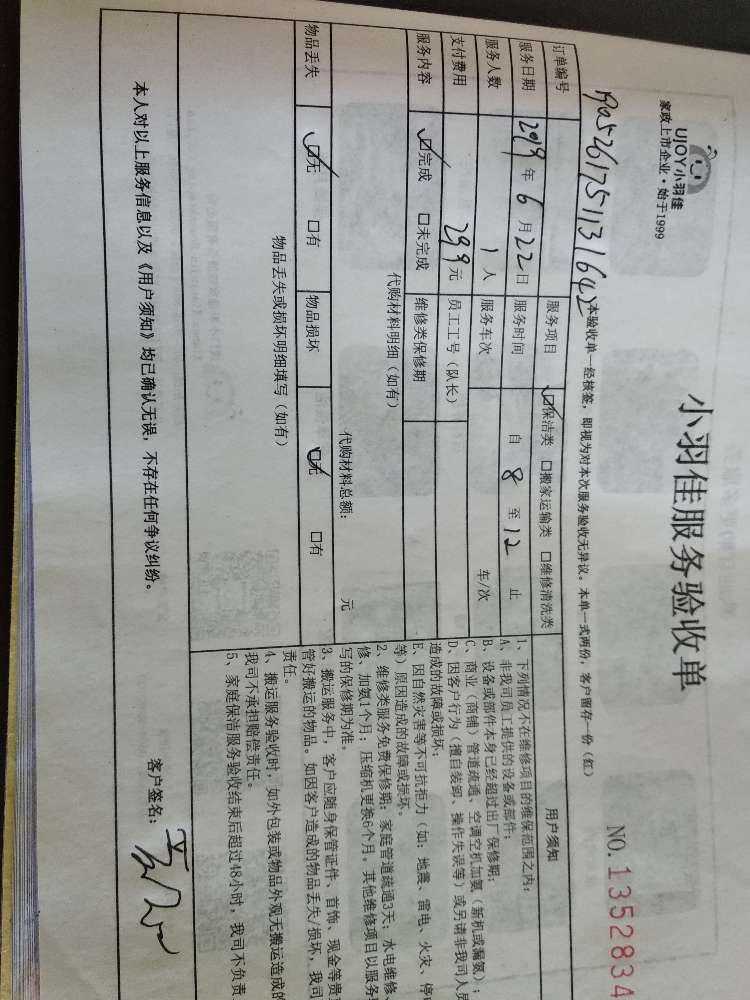 UJOY小羽佳
家政上市企业·始于1999
小羽佳服务验收单
NO.1352834
本验收单一经核签，即视为对本次服务验收无异议。本单一式两份，客户留存一份（红）
订单编号 1905261751131642
服务项目 ☑保洁类 □搬家运输类 □维修清洗类
服务日期 2019年6月22日 服务时间 自 8 至 12 止
服务人数 1人 服务车次 车/次
支付费用 299元 员工工号（队长）
服务内容 ☑完成 □未完成 维修类保修期
代购材料明细（如有）
代购材料总额： 元
物品丢失 ☑无 □有 物品损坏 ☑无 □有
物品丢失或损坏明细填写（如有）
用户须知
1、下列情况不在维修项目的维保范围之内：
A、非我司员工提供的设备或部件；
B、设备或部件本身已经超过出厂保修期；
C、商业（商铺）管道疏通、空调空机加氨（新机或漏氨）；
D、因客户行为（擅自装卸、操作失误等）或另请非我司人员
造成的故障或损坏；
E、因自然灾害等不可抗拒力（如：地震、雷电、火灾、停电
等）原因造成的故障或损坏。
2、维修类服务免费保修期：家庭管道疏通3天；水电维修、
修、加氨1个月；压缩机更换6个月，其他维修项目以服务单
写的保修期为准。
3、搬运服务中，客户应随身保管证件、首饰、现金等贵
管好搬运的物品。如因客户造成的物品丢失/损坏，我司
责任。
4、搬运服务验收时，如外包装或物品外观无搬运造成的
我司不承担赔偿责任。
5、家庭保洁服务验收结束后超过48小时，我司不负责
本人对以上服务信息以及《用户须知》均已确认无误，不存在任何争议纠纷。
客户签名：